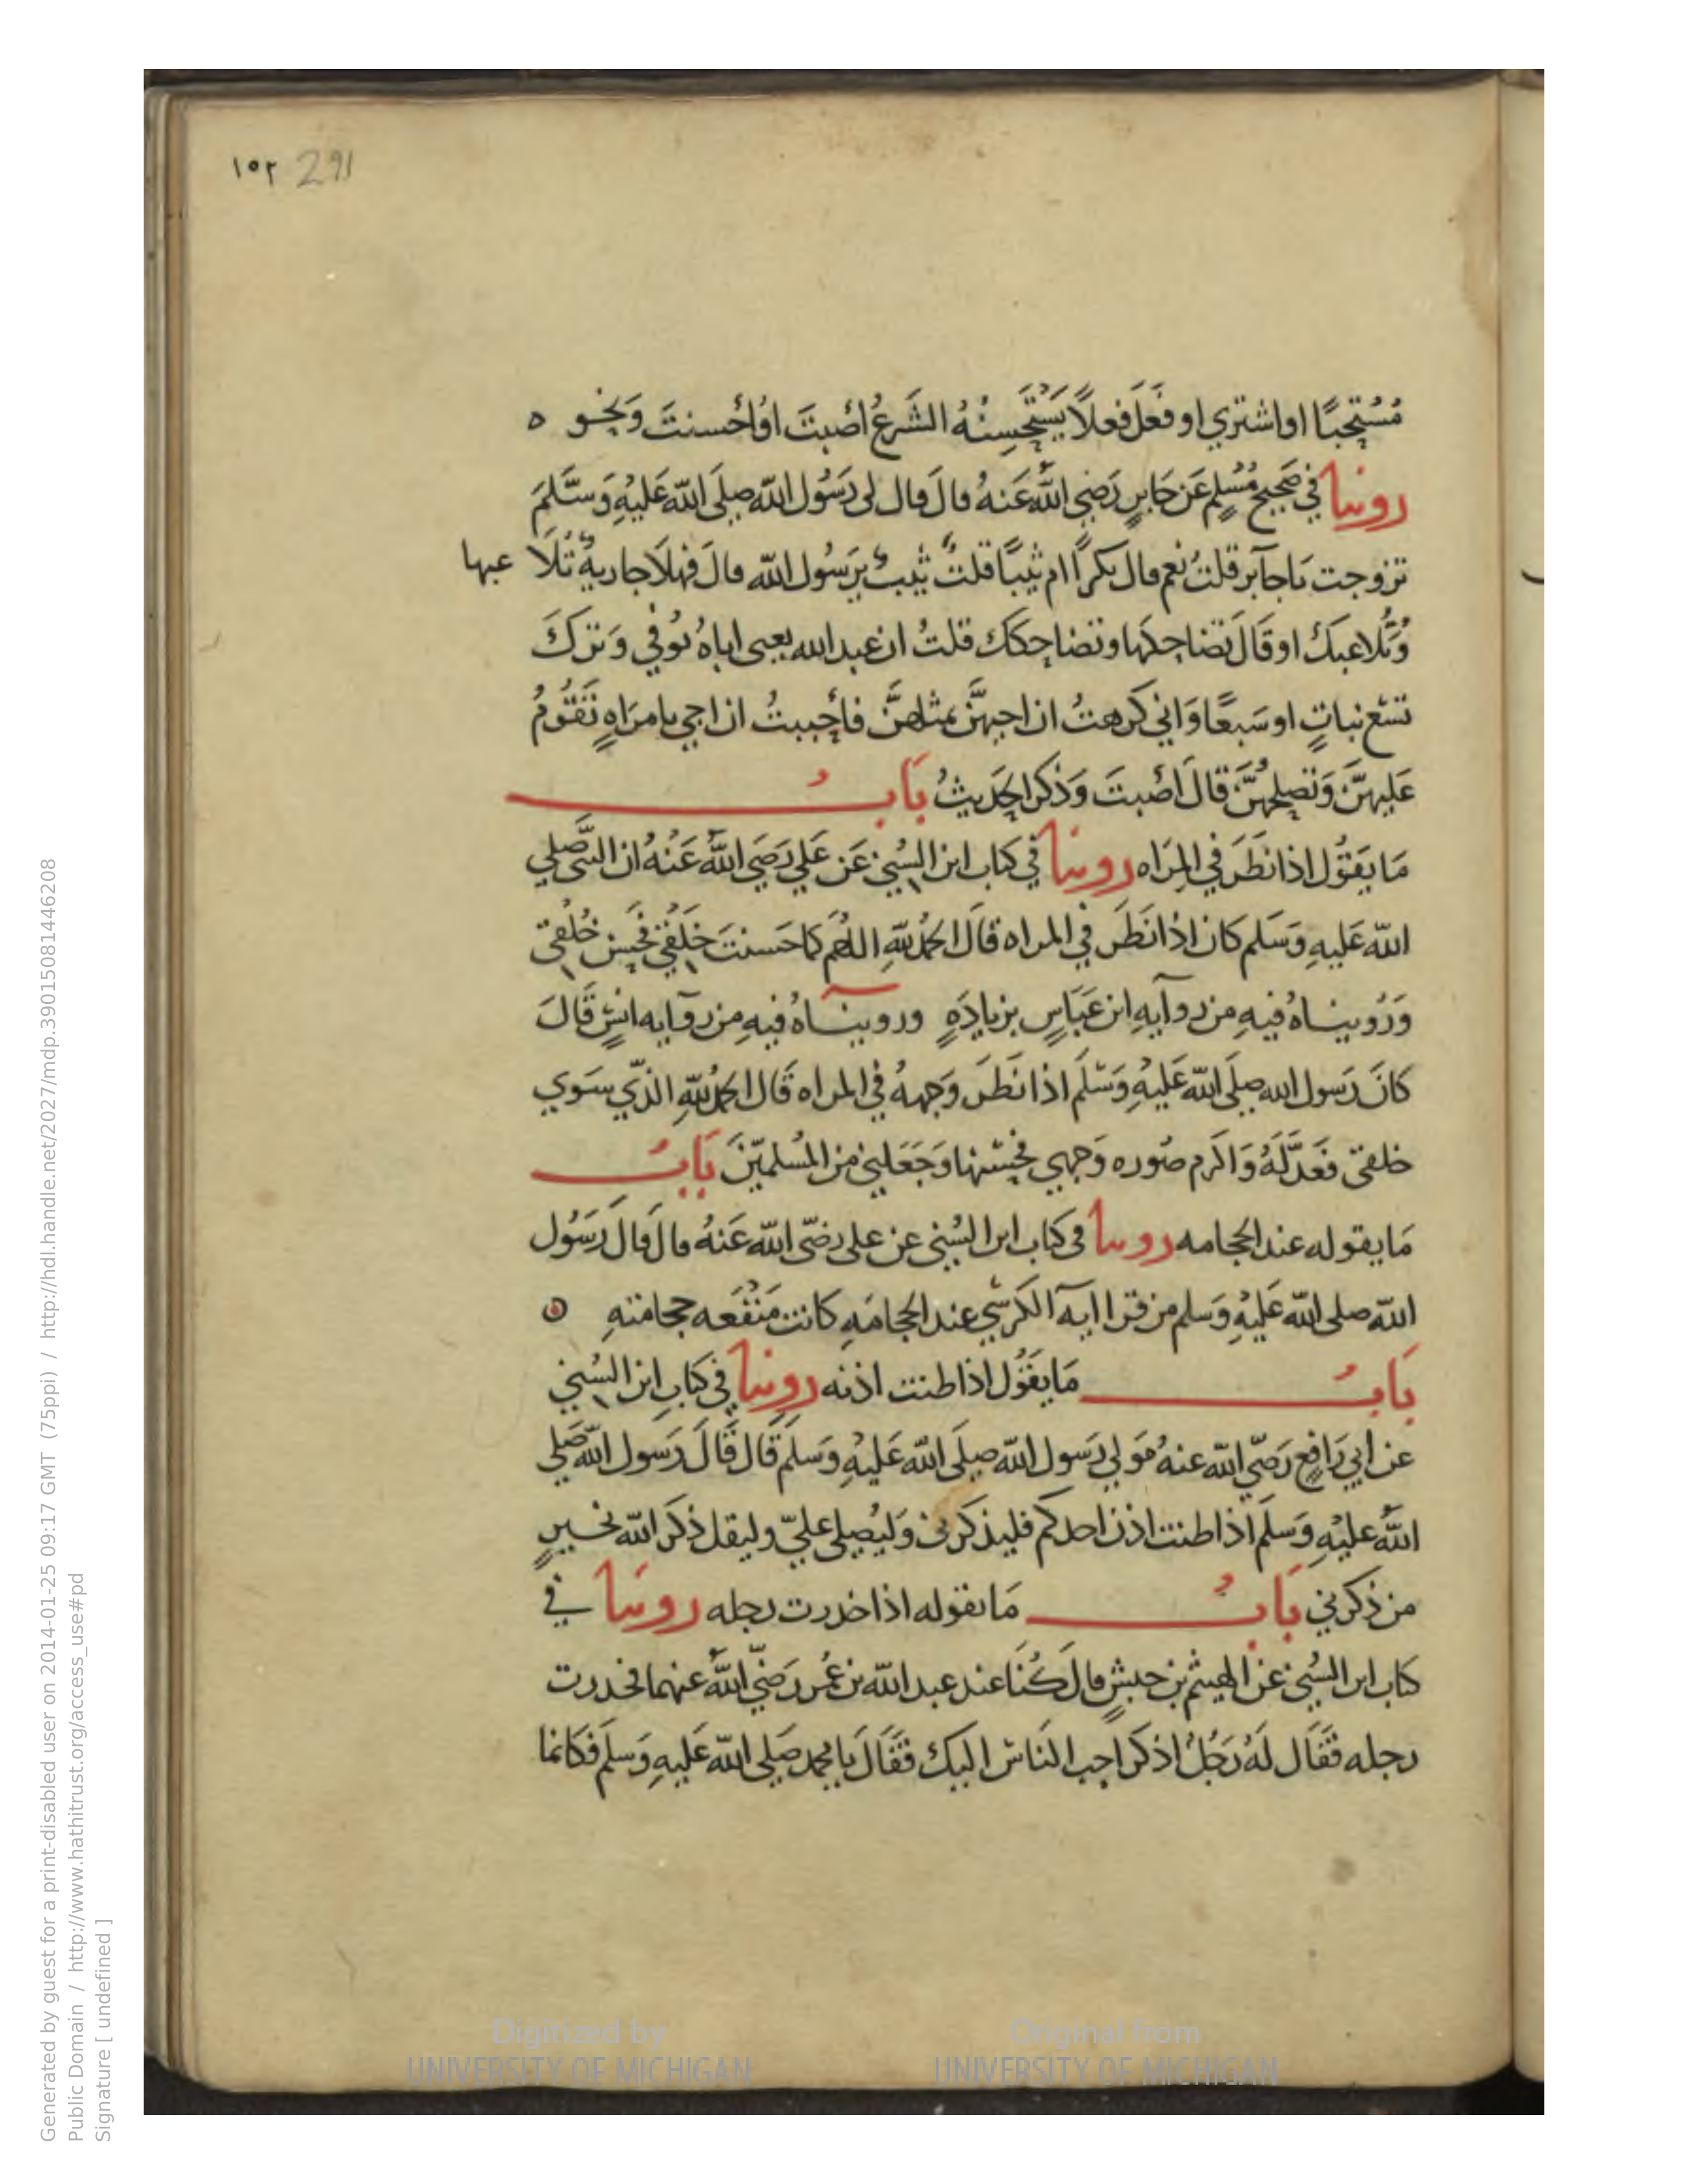 ١٥٢ 291
مُسْتَحِبًّا او اشتري او فَعَلَ فعلاً يَسْتَحْسِنُهُ الشَرعُ اَصَبتَ اوْ اَحْسنتَ وَنحو ه
روينا في صَحِيح مُسْلِمٍ عَن جَابرٍ رَضِي اللهُ عَنهُ قالَ قال لى رَسُول اللهِ صلَى الله عَليْهِ وَسَّلمَ
تزوجت يَا جَابر قلتُ نعم قال بكراً ام ثَيبًا قلتُ ثيبٌ يَرسُول الله قالَ فهَلا جاريةً تُلَا عبها
وَتُلاعبكَ او قَالَ تضاحكها وتضاحكك قلتُ ان عبد الله يعنى اباهُ توُفي وَترَكَ
تسْع بناتٍ او سَبعًا وَاني كرهتُ ان اجيهنَّ بمثلهنَّ فأحْببتُ ان اجي بامرَاهٍ تَقُومُ
عَليهنَّ وَتصلِحُهُنَّ قالَ اَصَبتَ وَذكر الحَديثُ بَابُ
مَا يَقوُل اذا نظَرَ في المِرَاه روينا في كتاب ابن السُني عَن عَلي رَضِيَ اللهُ عَنْهُ ان النبيَّ صَلي
الله عَليهِ وَسَلم كان اذا نَظَرَ في المراه قالَ الحمدُ للهِ اللهُم كما حَسنتَ خَلْقي فحَسِن خُلُقى
وَرُويناهُ فيهِ من روآيهِ ابن عَبَاسٍ بزيادَهٍ وروينَاهُ فيهِ مِن روَآيه انسٍ قَالَ
كانَ رَسول الله صلَى الله عَليْهِ وَسَلَم اذا نظَرَ وَجههُ في المراه قَال الحمدُ للهِ الذّي سَوي
خلقى فعَدَّلَهُ وَاكرم صُوره وَجهي فحسَّنها وَجَعَلني مِن المُسلميّنَ بَابُ
مَا يقوله عند الحجامه روينا في كتاب ابن السُني عن على رضّى الله عَنهُ قالَ قالَ رَسُول
الله صلى الله عَليْهِ وَسلم من قرا ايهَ الكرسّي عند الحجامَهِ كانت مَنفَعه حجامتهِ
بَابُ مَا يَقوُل اذا طنت اذنه روينا في كتابِ ابن السُني
عن ابي رَافِع رَضّي الله عنهُ مَولي رَسول الله صلَى الله عَليْهِ وَسَلَم قَال قَالَ رَسول الله صَلي
اللهُ عليْهِ وَسلَم اذا طنت اذن احدكم فليذكرنى وَليُصلى عليّ وليقل ذكرَ الله بخيرٍ
من ذكرني بَابُ مَا يقوله اذا خدرت رجله روينا في
كتاب ابن السُني عَن الهيثم بن حبشٍ قالَ كُنَا عند عبد الله بن عُمر رَضّي اللهُ عنهما فخدرت
رجله فقَال لَهُ رَجُلُ اذكر احب النَاس اليك فقَالَ يا محمد صَلى الله عَليهِ وَسلَم فكانما
Generated by guest for a print-disabled user on 2014-01-25 09:17 GMT (75ppi) / http://hdl.handle.net/2027/mdp.39015081446208
Public Domain / http://www.hathitrust.org/access_use#pd
Signature [ undefined ]
Digitized by
UNIVERSITY OF MICHIGAN
Original from
UNIVERSITY OF MICHIGAN